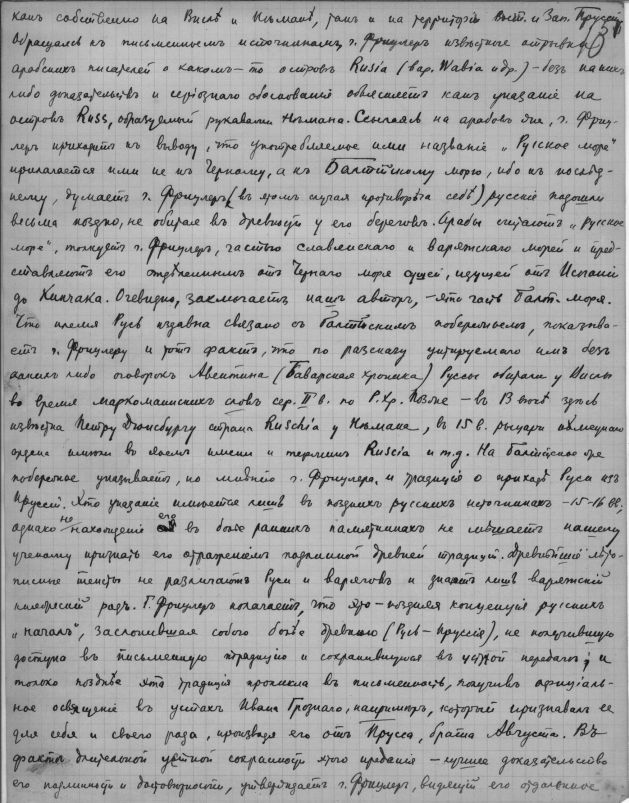 какъ собственно на Вислѣ и Нѣманѣ, такъ и на территоріи вост. и Зап. Пруссіи
Обращаясь къ письменнымъ источникамъ, г. Фрицлеръ извѣстные отрывки 3
арабскихъ писателей о какомъ-то островѣ Rusia (вар. Wabia и др.) - безъ какихъ
либо доказательствъ и серіознаго обоснованія объясняетъ какъ указаніе на
островъ Russ, образуемый рукавами Нѣмана. Ссылаясь на арабовъ же, г. Фриц-
леръ приходитъ къ выводу, что употребляемое ими названіе „Русское море"
прилагается ими не къ Черному, а къ Балтійскому морю, ибо къ послѣд-
нему, думаетъ г. Фрицлеръ (въ этомъ случаѣ противорѣча себѣ) русскіе подошли
весьма поздно, не обитая въ древности у его береговъ. Арабы считаютъ „русское
море", толкуетъ г. Фрицлеръ, частью славянскаго и варяжскаго морей и пред-
ставляютъ его отдѣленнымъ отъ Чернаго моря сушей, идущей отъ Испаніи
до Кипчака. Очевидно, заключаетъ нашъ авторъ, - это часть Балт. моря.
Что племя Русь издавна связано съ Балтійскимъ побережьемъ, показыва-
етъ г. Фрицлеру и тотъ фактъ, что по разсказу цитируемаго имъ безъ
какихъ либо оговорокъ Авентина (Баварская хроника) Руссы обитали у Вислы
во время маркоманнскихъ войнъ сер. II в. по Р. Хр. Позже - въ 13 вѣкѣ здѣсь
извѣстна Петру Дюисбургу страна Ruschia у Нѣмана, въ 15 в. рыцари нѣмецкаго
ордена имѣли въ своемъ имени и терминъ Ruscia и т. д. На Балтійское же
побережье указываетъ, по мнѣнію г. Фрицлера, и традиція о приходѣ Руси изъ
Пруссіи. Это указаніе имѣется лишь въ позднихъ русскихъ источникахъ - 15-16 вв.,
однако не нахожденіе его въ болѣе раннихъ памятникахъ не мѣшаетъ нашему
ученому признать его отраженіемъ подлинной древней традиціи. Древнѣйшіе лѣто-
писные тексты не различаютъ Руси и варяговъ и знаютъ лишь варяжскій
княжескій родъ. Г. Фрицлеръ полагаетъ, что это - поздняя концепція русскихъ
„началъ", заслонившая собою болѣе древнюю (Русь - Пруссія), не получившую
доступа въ письменную традицію и сохранившуюся въ устной передачѣ; и
только позднѣе эта традиція проникла въ письменность, получивъ офиціаль-
ное освященіе въ устахъ Ивана Грознаго, напримѣръ, который признавалъ ее
для себя и своего рода, производя его отъ Прусса, брата Августа. Въ
фактѣ длительной устной сохранности этого преданія - лучшее доказательство
его подлинности и достовѣрности, утверждаетъ г. Фрицлеръ, видящій его отдаленное